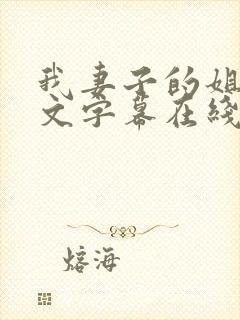 我妻子的姐
文字幕在线
熔海